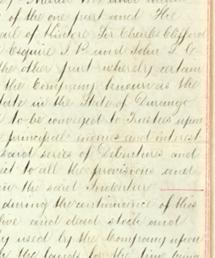 of the one part and The
Earl of Kintore Sir Charles Clifford
Esquire J.P. and John
the other part whereby certain
the Company known as the
in the State of Durango
to be conveyed to Trustees upon
principal monies and interest
said series of Debentures and
to all the provisions and
in the said Indenture
during the continuance of this
live and dead stock and
used by the Company upon
the lands for the time being